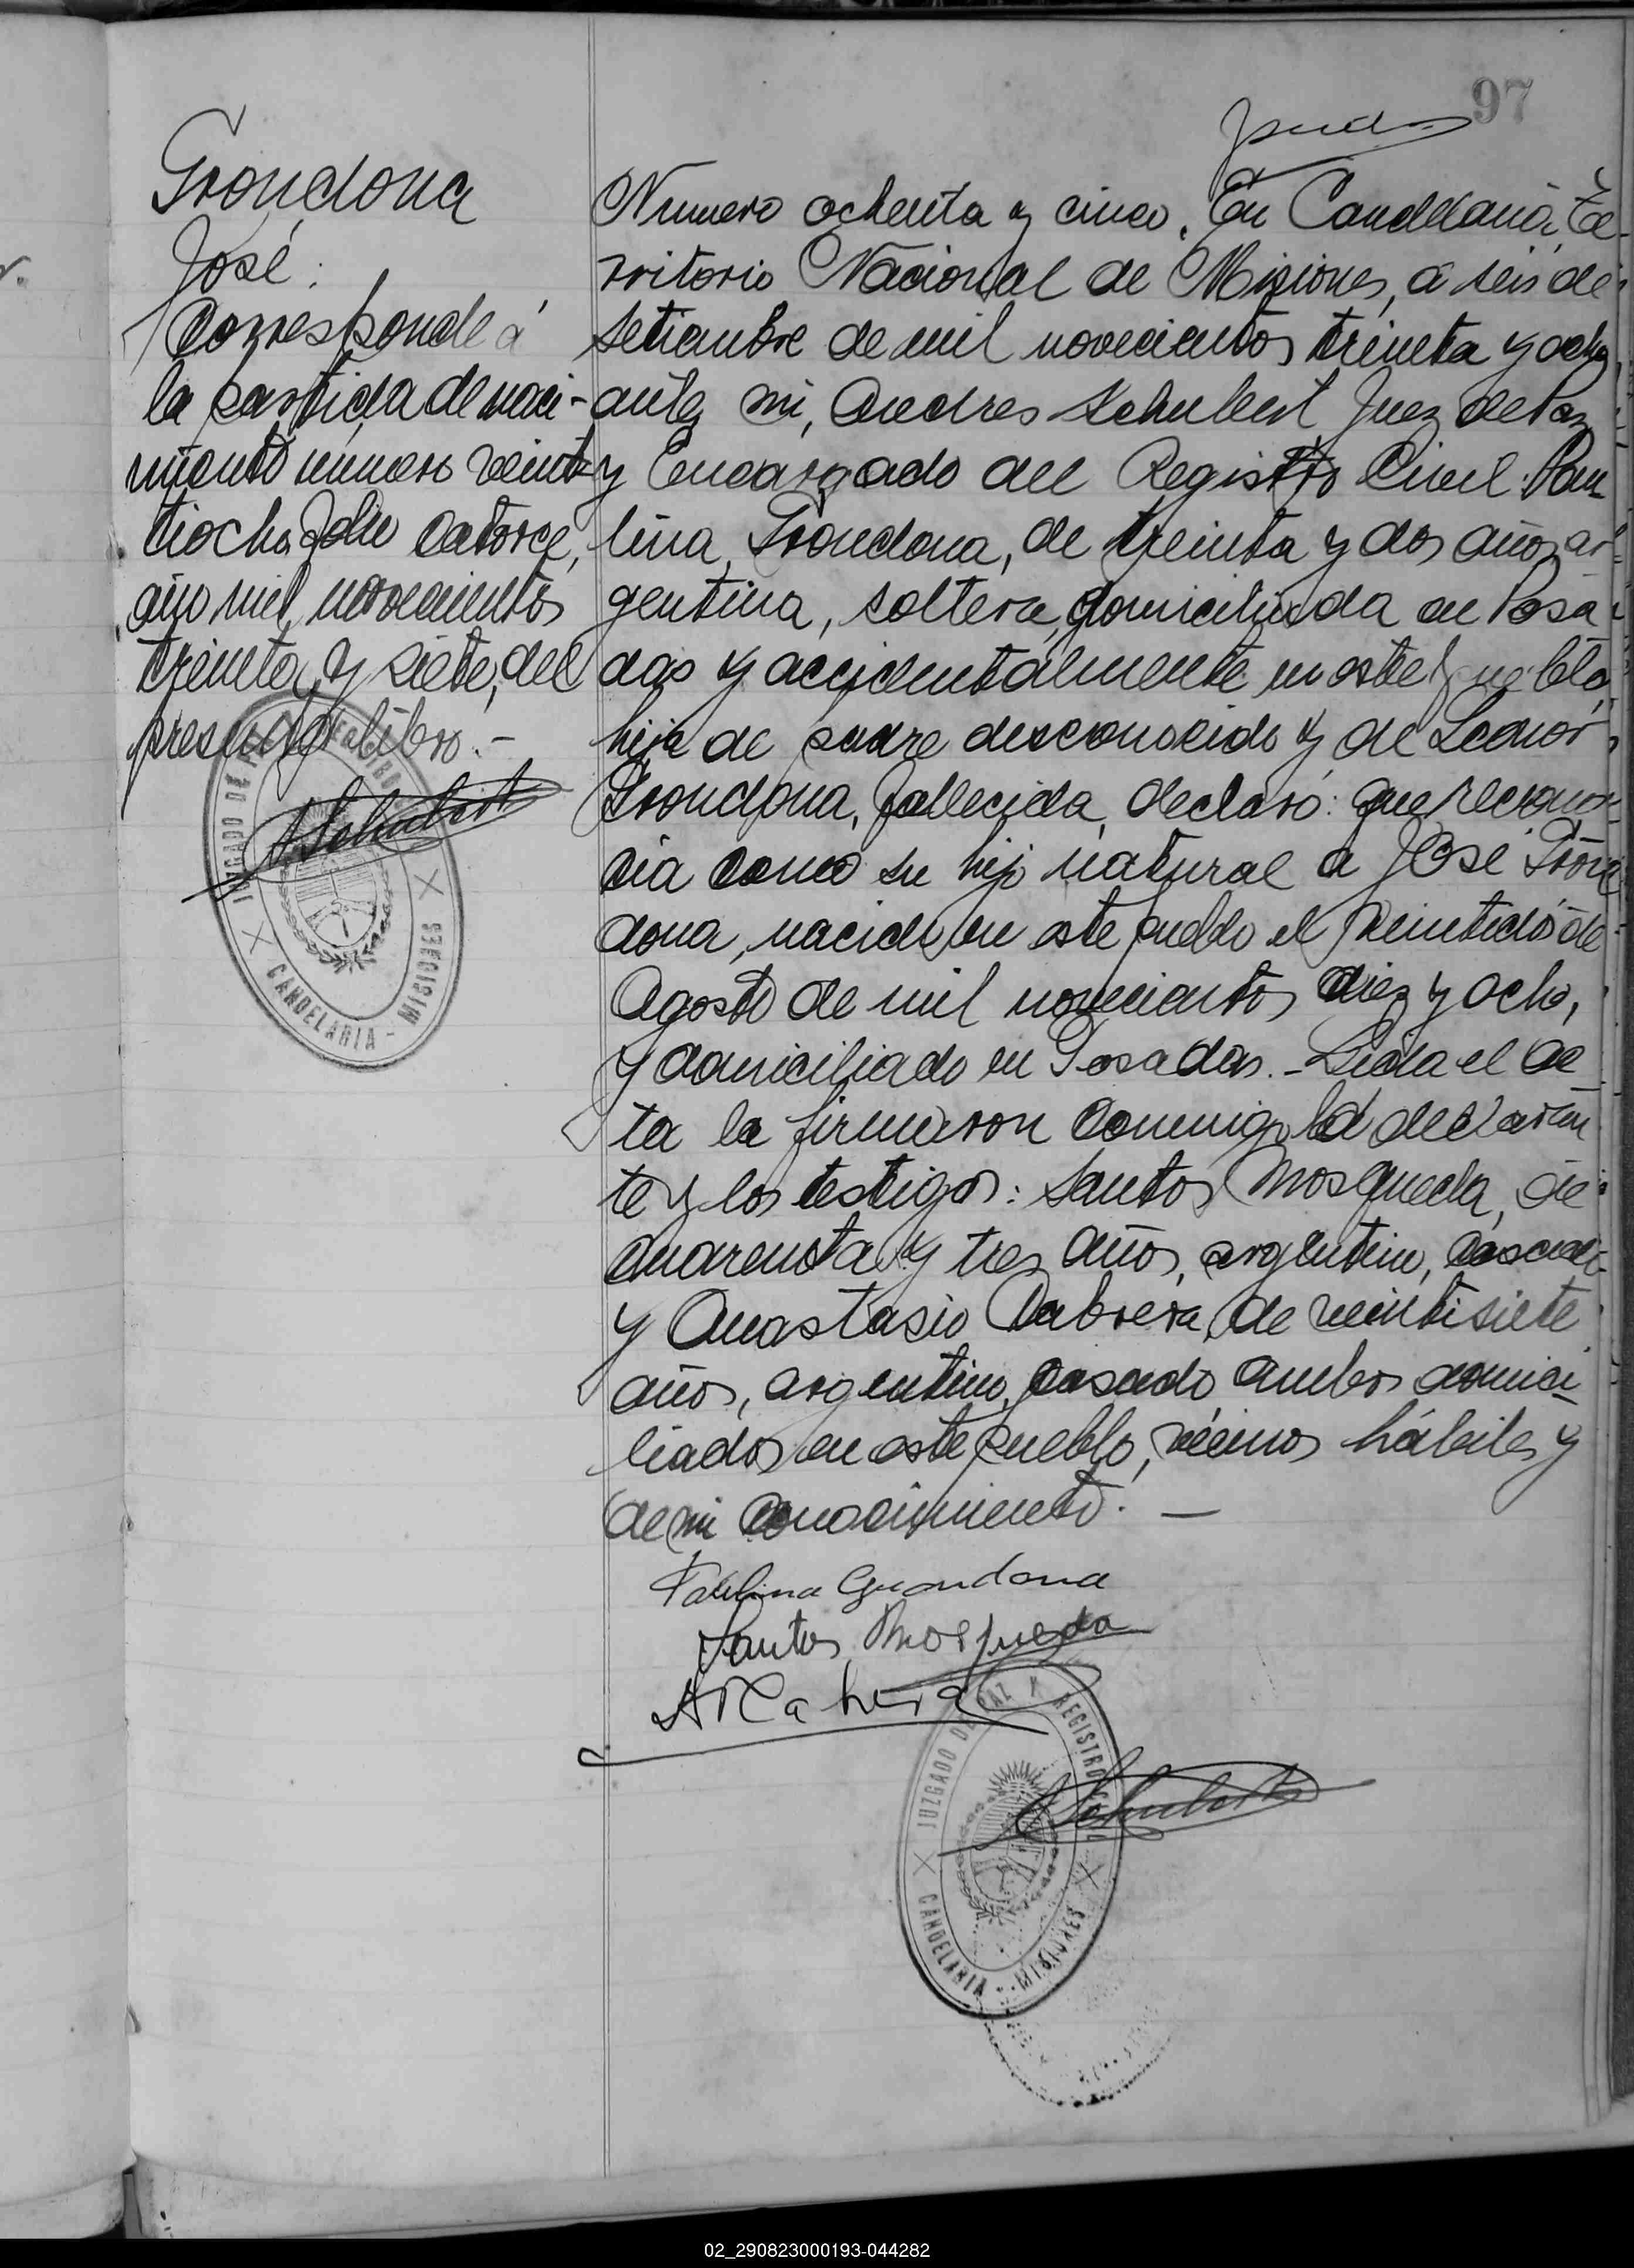 97
Grondona
José:
Corresponde á
la partida de naci-
miento número veint-
tiocho, folio catorce,
año mil novecientos
treinta y siete, del
presente libro.-
ASchubert
JUZGADO DE PAZ Y REGISTRO CIVIL
CANDELARIA - MISIONES
Numero ochenta y cinco. En Candelaria, Te-
rritorio Nacional de Misiones, a seis de
Setiembre de mil novecientos treinta y ocho
ante mi, Andres Schubert Juez de Paz
y Encargado del Registro Civil Pau
lina Grondona, de treinta y dos años, ar-
gentina, soltera, domiciliada en Posa-
das y accidentalmente en este pueblo,
hija de padre desconocido y de Leonor
Grondona, fallecida, declaró: que recono-
cia como su hijo natural a José Gron
dona, nacido en este pueblo el veintidos de
Agosto de mil novecientos diez y ocho,
y domiciliado en Posadas.- Leida el Ac
ta la firmaron conmigo la declaran
te y los testigos: Santos Mosqueda, de
cuarenta y tres años, argentino, casado
y Anastasio Cabrera, de veintisiete
años, argentino, casado, ambos domici-
liados en este pueblo, vecinos hábiles y
de mi conocimiento. —
Paulina Grondona
Santos Mosqueda
ACabrera
JUZGADO DE PAZ Y REGISTRO CIVIL
CANDELARIA - MISIONES
ASchubert
02_290823000193-044282